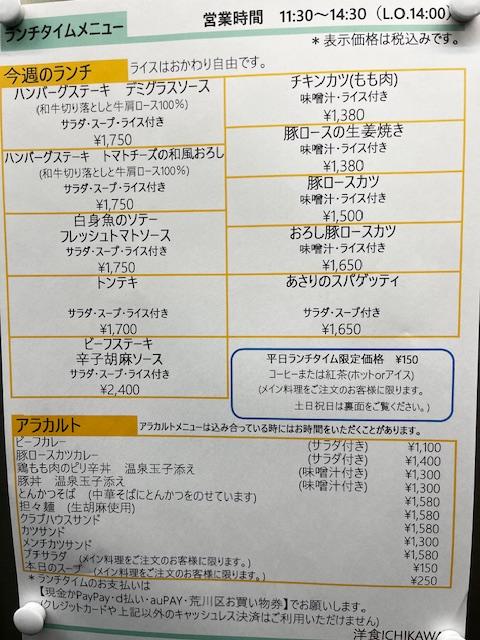 ランチタイムメニュー
営業時間 11:30～14:30（L.O.14:00）
＊表示価格は税込みです。
今週のランチ
ライスはおかわり自由です。
ハンバーグステーキ　デミグラスソース
(和牛切り落としと牛肩ロース100%)
サラダ・スープ・ライス付き
¥1,750
ハンバーグステーキ　トマトチーズの和風おろし
(和牛切り落としと牛肩ロース100%)
サラダ・スープ・ライス付き
¥1,750
白身魚のソテー
フレッシュトマトソース
サラダ・スープ・ライス付き
¥1,750
トンテキ
サラダ・スープ・ライス付き
¥1,700
ビーフステーキ
辛子胡麻ソース
サラダ・スープ・ライス付き
¥2,400
チキンカツ(もも肉)
味噌汁・ライス付き
¥1,380
豚ロースの生姜焼き
味噌汁・ライス付き
¥1,380
豚ロースカツ
味噌汁・ライス付き
¥1,500
おろし豚ロースカツ
味噌汁・ライス付き
¥1,650
あさりのスパゲッティ
サラダ・スープ付き
¥1,650
平日ランチタイム限定価格　¥150
コーヒーまたは紅茶(ホットorアイス)
(メイン料理をご注文のお客様に限ります。
土日祝日は裏面をご覧ください。)
アラカルト
アラカルトメニューは込み合っている時にはお時間をいただくことがあります。
ビーフカレー (サラダ付き) ¥1,100
豚ロースカツカレー (サラダ付き) ¥1,400
鶏もも肉のピリ辛丼　温泉玉子添え (味噌汁付き) ¥1,300
豚丼　温泉玉子添え (味噌汁付き) ¥1,300
とんかつそば　(中華そばにとんかつをのせています) ¥1,580
担々麺　(生胡麻使用) ¥1,580
クラブハウスサンド ¥1,580
カツサンド ¥1,300
メンチカツサンド ¥1,580
プチサラダ　(メイン料理をご注文のお客様に限ります。) ¥150
本日のスープ　(メイン料理をご注文のお客様に限ります。) ¥250
＊ランチタイムのお支払いは
【現金かPayPay・d払い・auPAY・荒川区お買い物券】でお願いします。
(クレジットカードや上記以外のキャッシュレス決済はご利用いただけません)
洋食ICHIKAWA